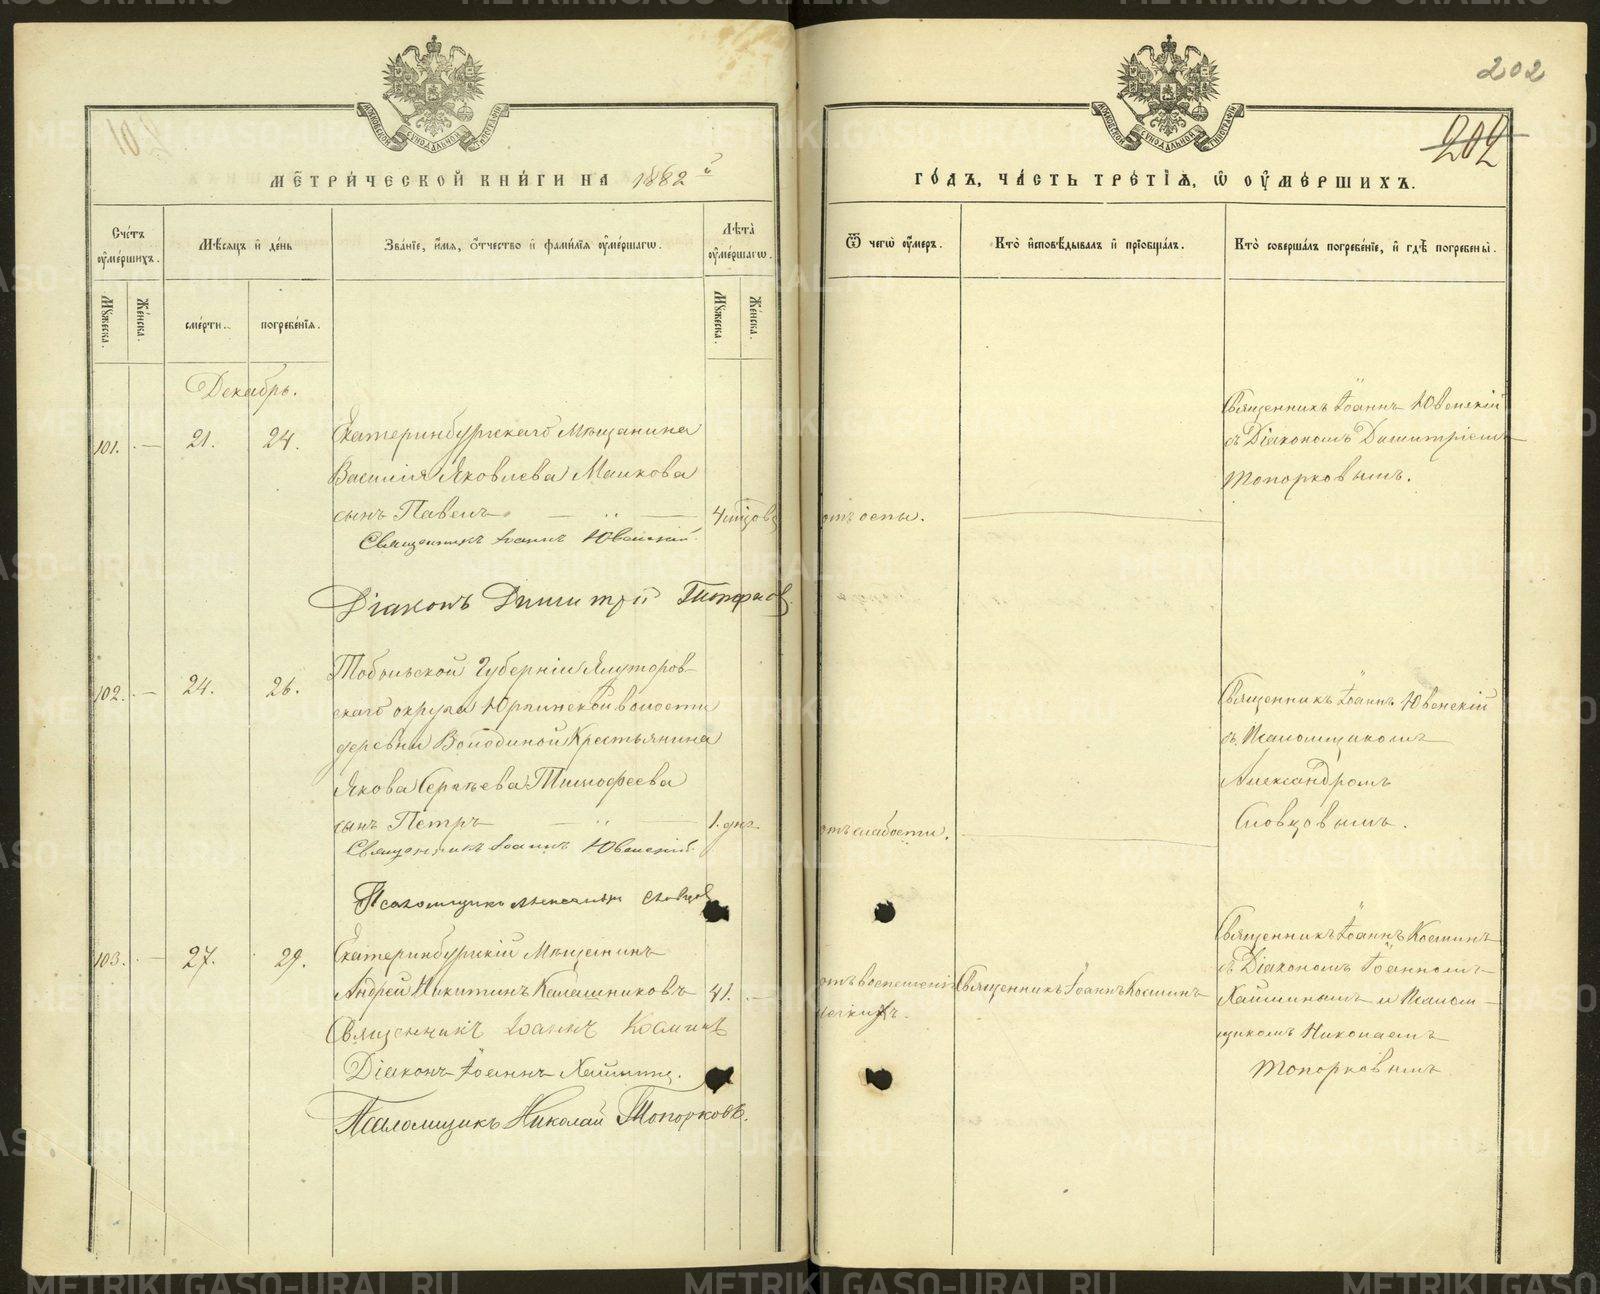 202
202
МЕТРИЧЕСКОЙ КНИГИ НА 1882й
ГОДЪ, ЧАСТЬ ТРЕТІЯ, Ѡ ОУМЕРШИХЪ.
Счетъ оумершихъ.
Мѣсяцъ и день
Званіе, имя, отчество и фамилія оумершагѡ.
Лѣта оумершагѡ.
Ѿ чегѡ оумеръ.
Кто исповѣдывалъ и пріобщалъ.
Кто совершалъ погребеніе, и гдѣ погребены.
Мужеска.
Женска.
смерти.
погребенія.
Мужеска.
Женска.
Декабрь.
101. — 21. 24.
Екатеринбургскаго Мѣщанина
Василія Яковлева Маикова
сынъ Павелъ
отъ оспы.
Священникъ Іоаннъ Ювенскій
съ Діакономъ Димитріемъ
Топорковымъ.
Священникъ Іоаннъ Ювенскій.
Діаконъ Димитрій Топорков
102. — 24. 26.
Тобольской Губерніи Ялуторов-
скаго округа Юргинской волости
деревни Володиной Крестьянина
Якова Сергѣева Тимофеева
сынъ Петръ
1. дня
отъ слабости.
Священникъ Іоаннъ Ювенскій
съ Псаломщикомъ
Александромъ
Словцовымъ.
Священникъ Іоаннъ Ювенскій.
Псаломщикъ Александръ Словцов
103. — 27. 29.
Екатеринбургскій Мѣщанинъ
Андрей Никитинъ Калашниковъ
41. —
отъ воспаленія
легкихъ.
Священникъ Іоаннъ Косминъ
Священникъ Іоаннъ Косминъ
съ Діакономъ Іоанномъ
Хайминымъ и Псалом-
щикомъ Николаемъ
Топорковымъ
Священникъ Іоаннъ Косминъ
Діаконъ Іоаннъ Хайминъ.
Псаломщикъ Николай Топорковъ.
METRIKI.GASO-URAL.RU